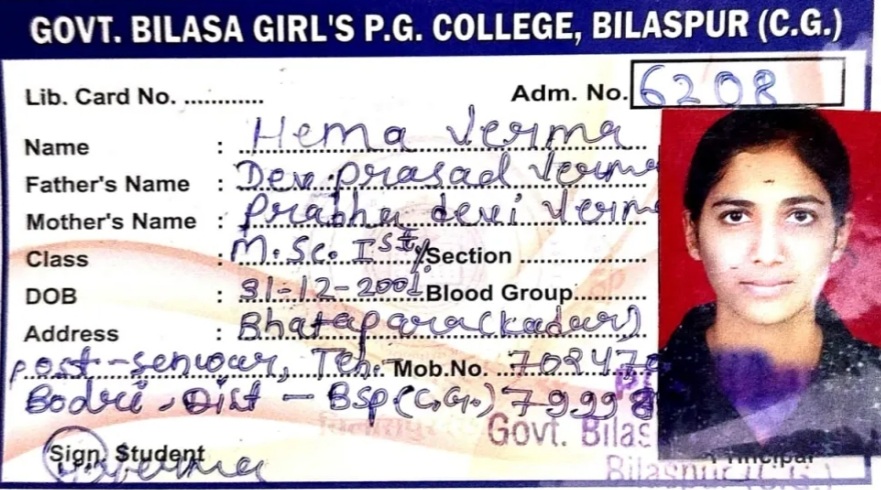 GOVT. BILASA GIRL'S P.G. COLLEGE, BILASPUR (C.G.)
Lib. Card No. ............. Adm. No. 6208
Name : Hema Verma
Father's Name : Dev prasad Verma
Mother's Name : Prabha devi Verma
Class : M.Sc. Ist /Section ....................
DOB : 31-12-2001 Blood Group............
Address : Bhatapara (kadar)
post-senwar, Teh. Mob.No. 70247
Bodri, Dist - Bsp (C.G.) 79998
Govt. Bilas
Sign. Student Principal
Bilaspur (C.G.)